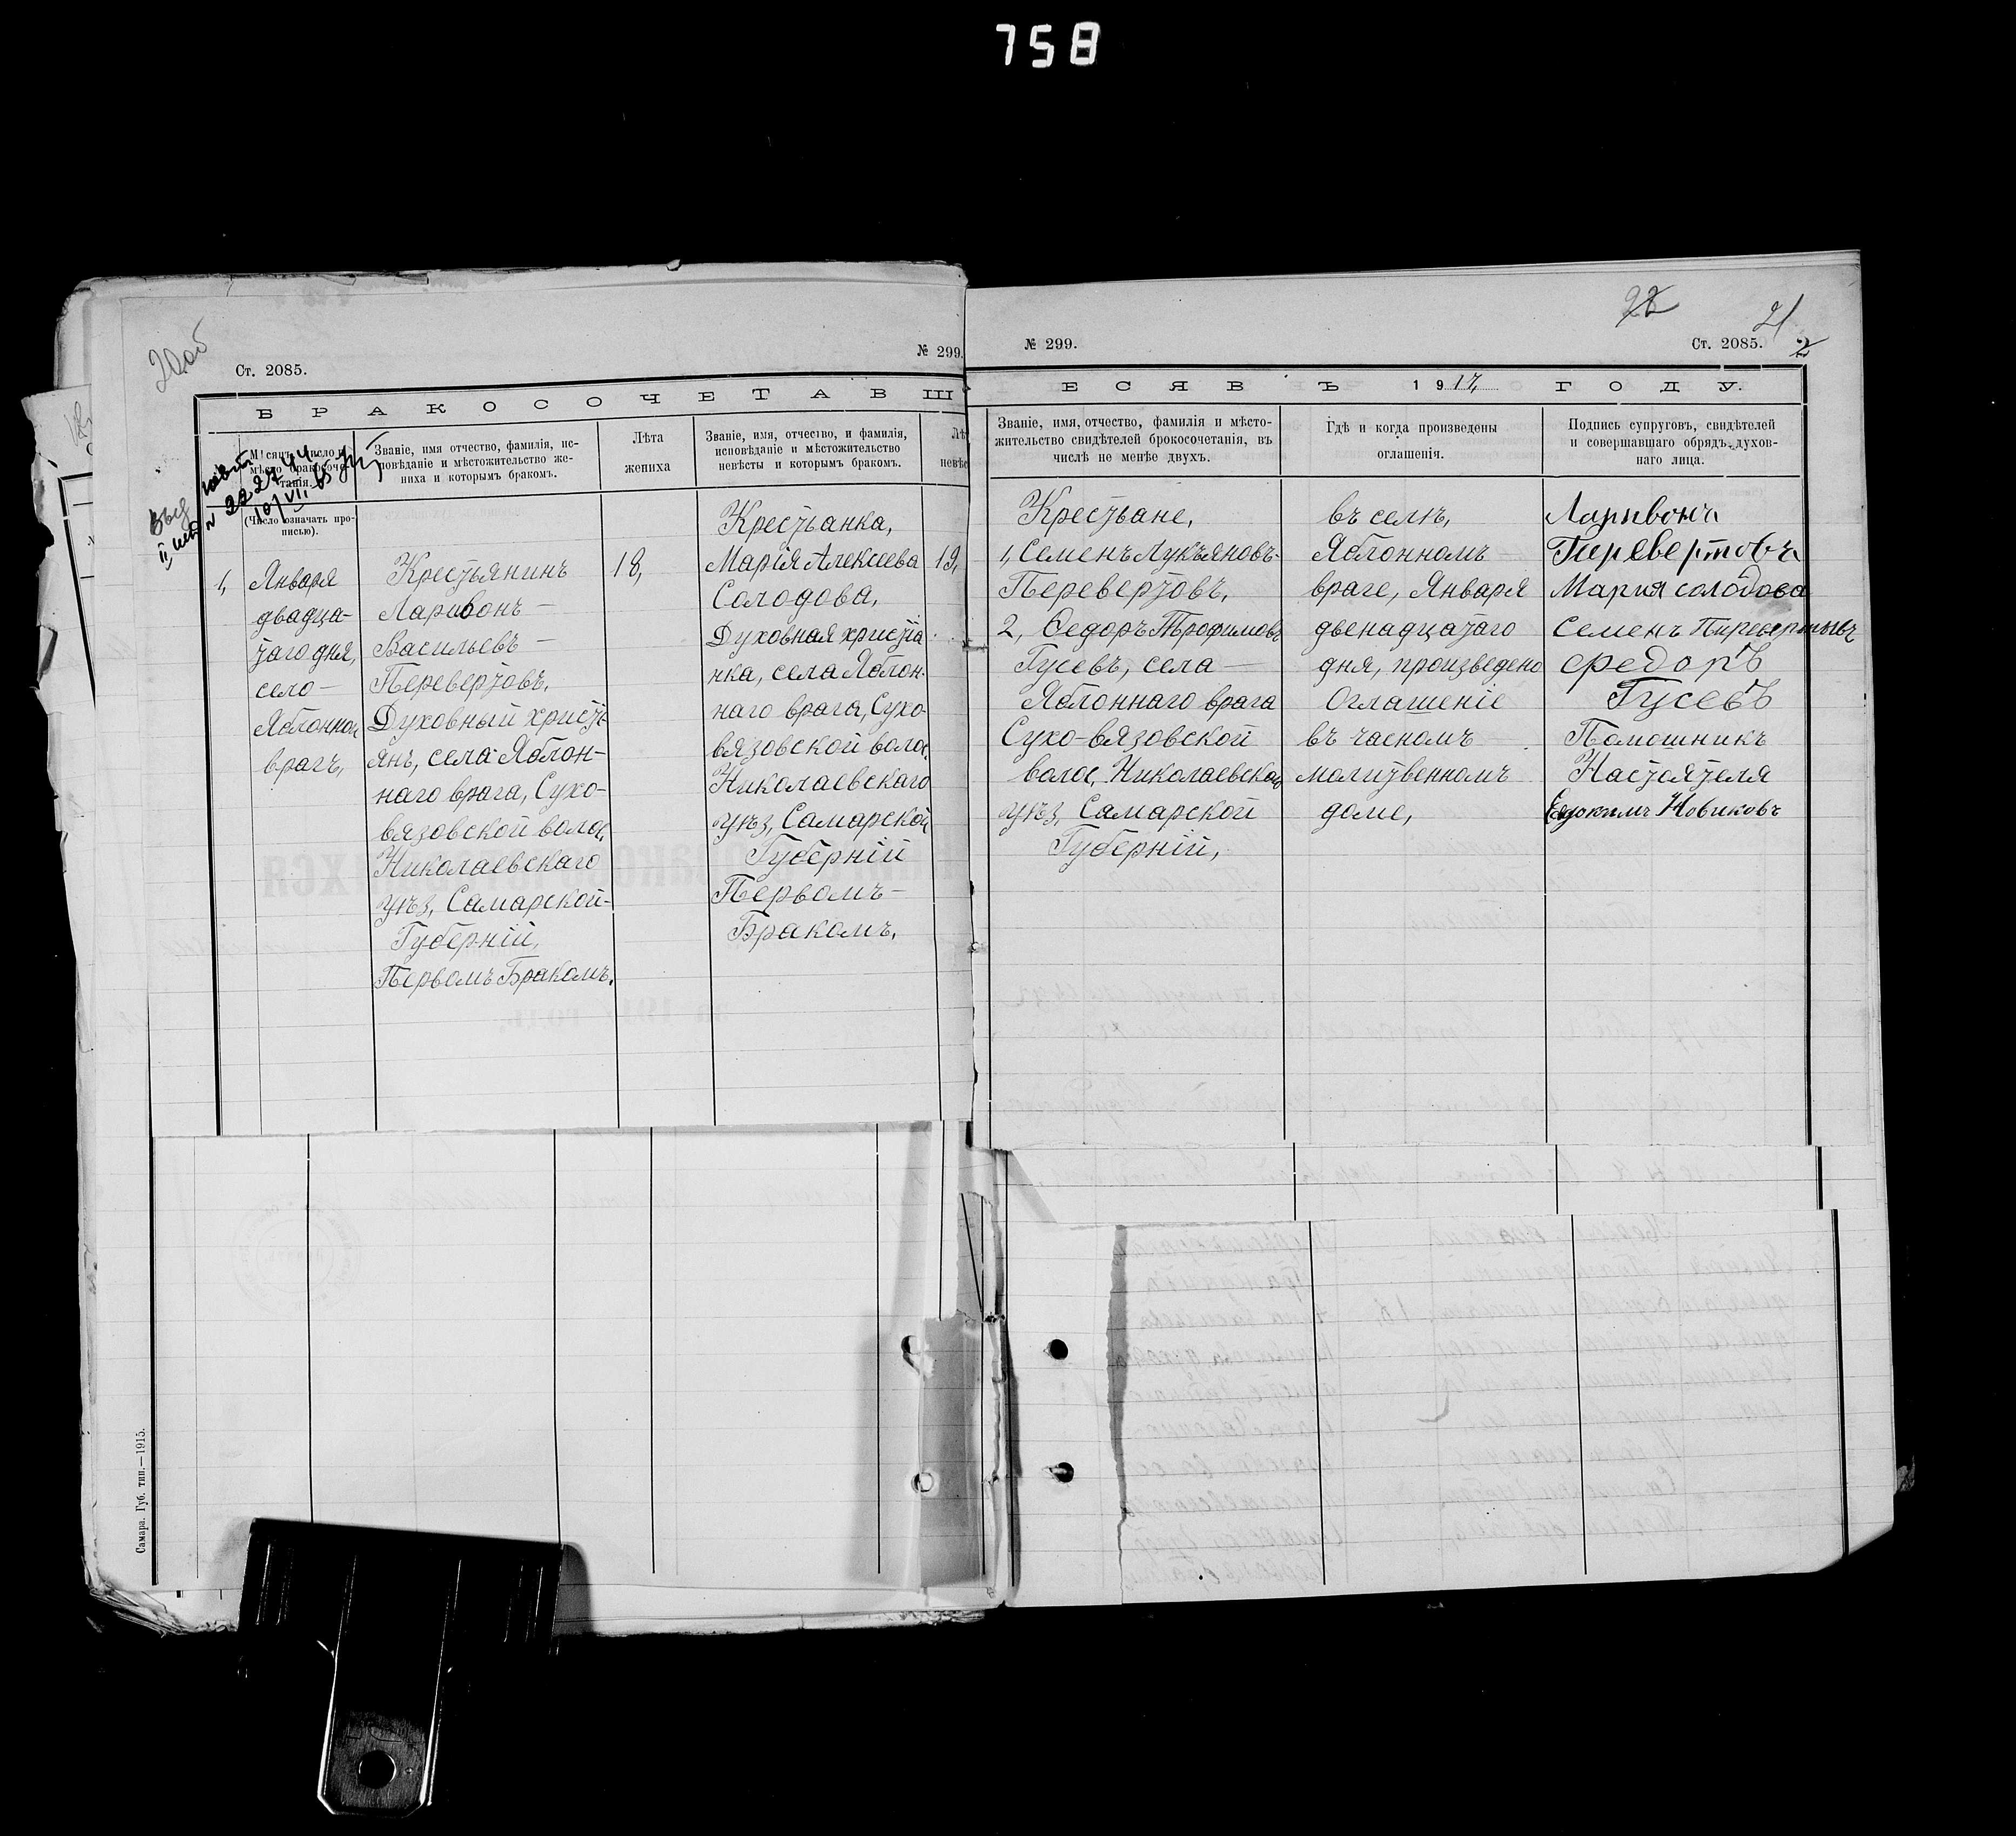 758
20об
Ст. 2085.
№ 299.
БРАКОСОЧЕТАВШ
Мѣсяцъ, число и мѣсто бракосоче-
танія.
(Число означать про-
писью).
Званіе, имя отчество, фамилія, ис-
повѣданіе и мѣстожительство же-
ниха и которымъ бракомъ.
Лѣта
жениха
Званіе, имя, отчество, и фамилія,
исповѣданіе и мѣстожительство
невѣсты и которымъ бракомъ.
Лѣ
невѣс
1,
Января
двадца-
таго дня,
село —
Яблонной
врагъ,
Крестьянинъ
Ларивонъ —
Васильевъ —
Переверзовъ,
Духовный христі-
янъ, села Яблон-
наго врага, Сухо-
вязовской волос,
Николаевскаго
уѣз, Самарской-
Губерніи,
Первомъ Бракомъ.
18,
Крестьанка,
Марія Алексеева
Солодова,
Духовная христіа
нка, села Яблон.
наго врага, Сухо-
вязовской волос,
Николаевскаго
уѣз, Самарской
Губерній
Первомъ —
Бракомъ,
19,
Самара. Губ. тип.—1915.
22
21
2
№ 299.
Ст. 2085.
ЕСЯ ВЪ 1917, ГОДУ.
Званіе, имя, отчество, фамилія и мѣсто-
жительство свидѣтелей брокосочетанія, въ
числѣ не менѣе двухъ.
Гдѣ и когда произведены
оглашенія.
Подпись супруговъ, свидѣтелей
и совершавшаго обрядъ духов-
наго лица.
Крестьане,
1, Семенъ Лукъяновъ-
Переверзовъ,
2, Федоръ Трофимовъ
Гусевъ, села —
Яблоннаго врага
Сухо-вязовской
волос, Николаевскаго
уѣз, Самарской
Губерній,
въ селѣ,
Яблонномъ —
враге, Января
двенадцатаго
дня, произведено
Оглашеніе
въ часномъ
молитвенномъ
доме,
Ларивонъ
Мария солодова
Семенъ
Федоръ
Гусевъ
Помошникъ
Настоятеля
Евдокимъ Новиковъ